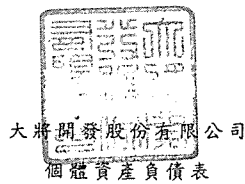 大將開發股份有限公司
個體資產負債表